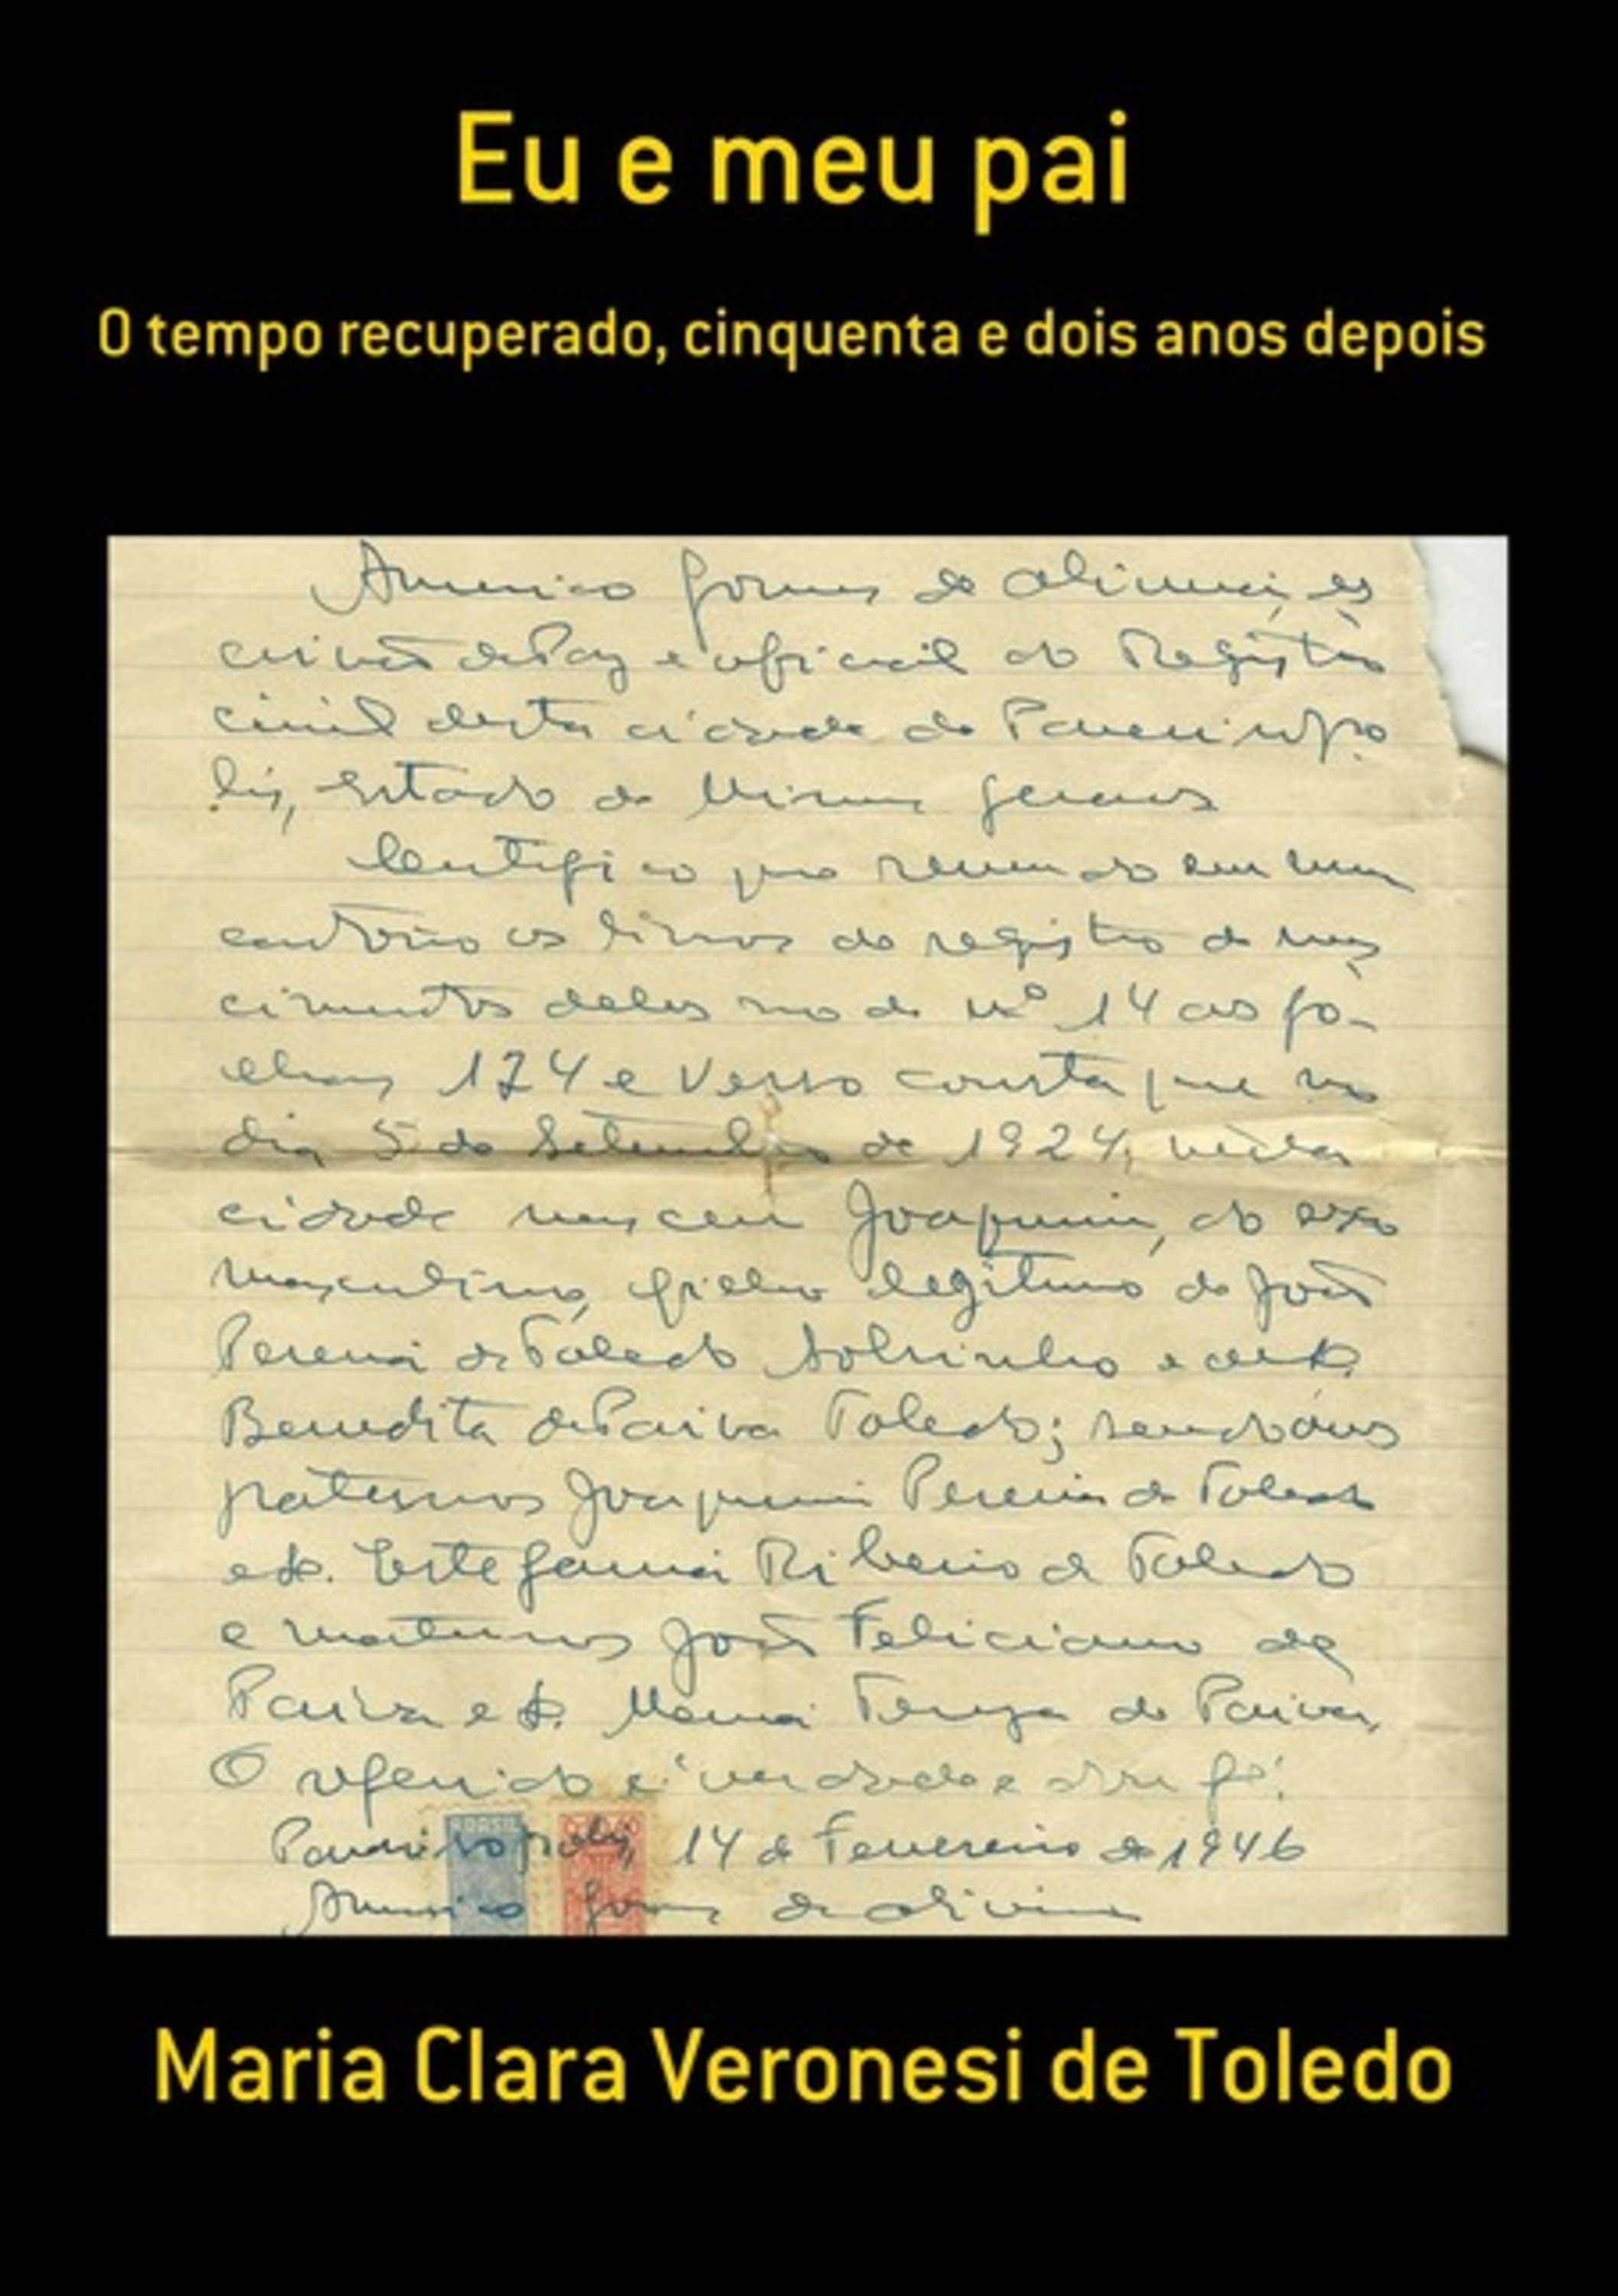 Eu e meu pai
O tempo recuperado, cinquenta e dois anos depois
Americo Gomes de Oliveira, es
crivão de Paz e oficial do Registro
civil desta cidade de Paraisopo
lis, Estado de Minas Gerais
Certifico que revendo em meu
cartorio os livros de registro de nas
cimentos deles no de nº 14 as fo-
lhas 174 e verso consta que no
dia 5 de Setembro de 1924, nesta
cidade nasceu Joaquim, do sexo
masculino, filho legitimo de João
Pereira de Toledo Sobrinho e de D.
Benedita de Paiva Toledo; sendo avós
paternos Joaquim Pereira de Toledo
e D. Estefania Ribeiro de Toledo
e maternos João Feliciano de
Paiva e D. Maria Tereza de Paiva,
O referido é verdade e dou fé.
Paraisopolis, 14 de Fevereiro de 1946
Americo Gomes de Oliveira
BRASIL
Maria Clara Veronesi de Toledo